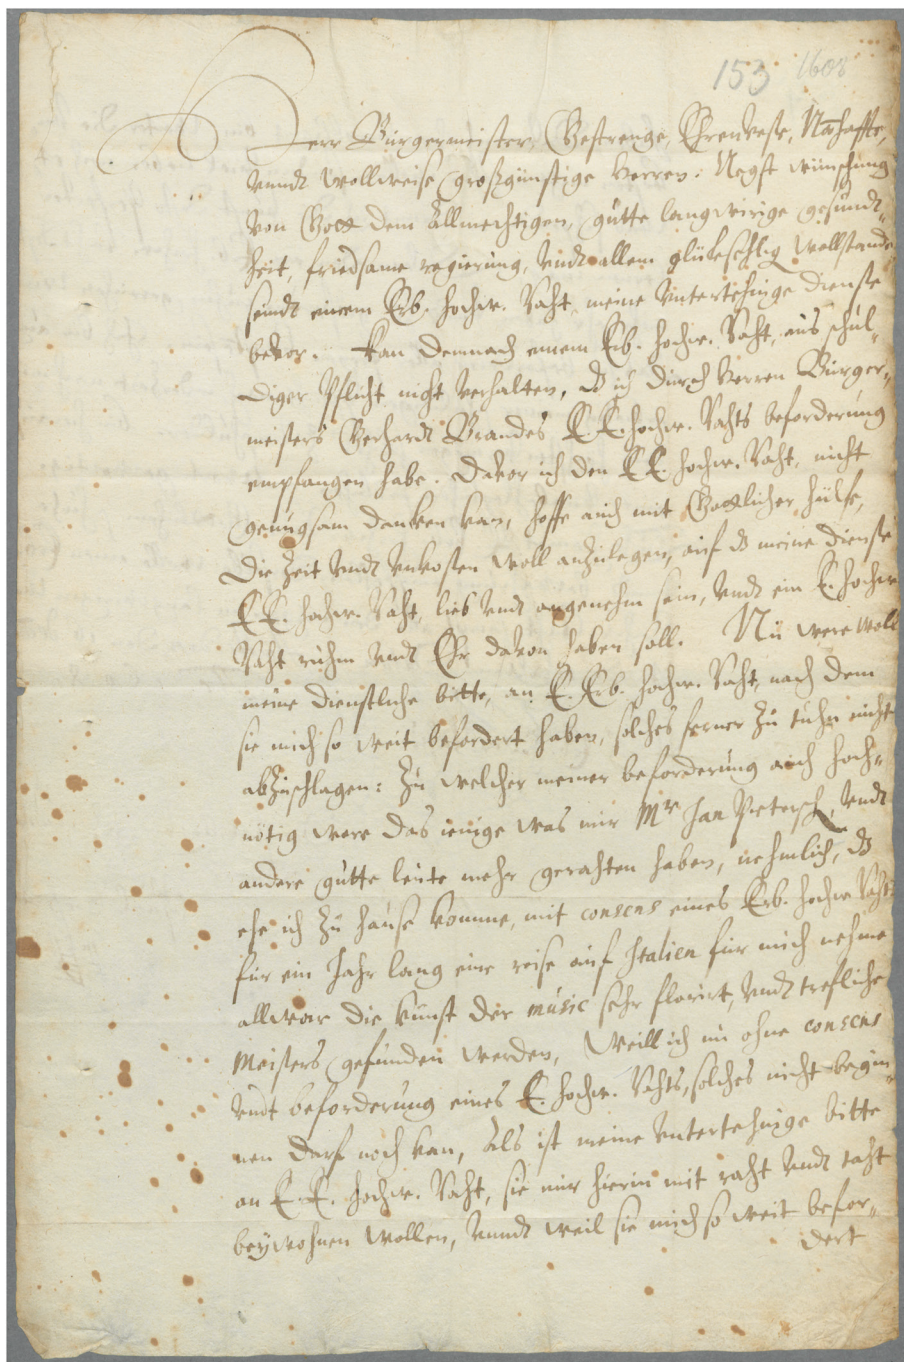 153 1608
Herr Bürgermeister, Gestrenge, Ehrenveste, Nahmhaffte,
vnndt wollweise großgünstige Herren: Negst wünschung
von Gott dem Allmechtigen, gutte langwirige gesundt=
heit, friedsame regierung, vndt allem glückschlig wollstande
seindt einem Erb. Hochw. Raht, meine vntertehnige dienste
bevor. kan demnach einem Erb. Hochw. Raht, aus schul=
diger Pflicht nicht verhalten, ds ich durch Herren Bürger=
meisters Gerhardt Brandes E E. hochw. Rahts beforderung
empfangen habe. Davor ich den E E. hochw. Raht, nicht
genugsam dancken kan, hoffe auch mit Gottlicher hülfe,
Die Zeit vndt vnkosten woll anzulegen, auf ds meine dienste
E E. hochw. Raht, lieb vndt angenehm sein, vndt ein E. hochw
Raht ruhm vndt Ehr davon haben soll. Nu were woll
meine dienstliche bitte, an E. Erb. hochw. Raht, nach dem
sie mich so weit befordert haben, solches ferner zu tuhn nicht
abzuschlagen: Zu welcher meiner beforderung auch hoch=
nötig were das ienige was mir Mr Jan Pietersch, vndt
andere gutte leute mehr gerahten haben, nehmlich, ds
ehe ich zu hause komme, mit consens eines Erb. hochw Raht
für ein Jahr lang eine reise auf Italien für mich nehme
allwar die kunst der music sehr florirt, vndt trefliche
Meisters gefunden werden, Weill ich nu ohne consens
vndt beforderung eines E. hochw. Rahts, solches nicht begin=
nen darf noch kan, Als ist meine vntertehnige bitte
an E. E. hochw. Raht, sie mir hierin mit raht vndt taht
beywohnen wollen, vnndt weil sie mich so weit befor=
dert